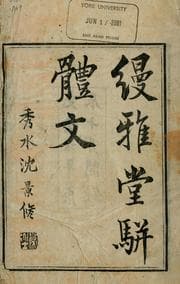 YORK UNIVERSITY
JUN 1 / 2001
縵雅堂駢
體文
秀水沈景修